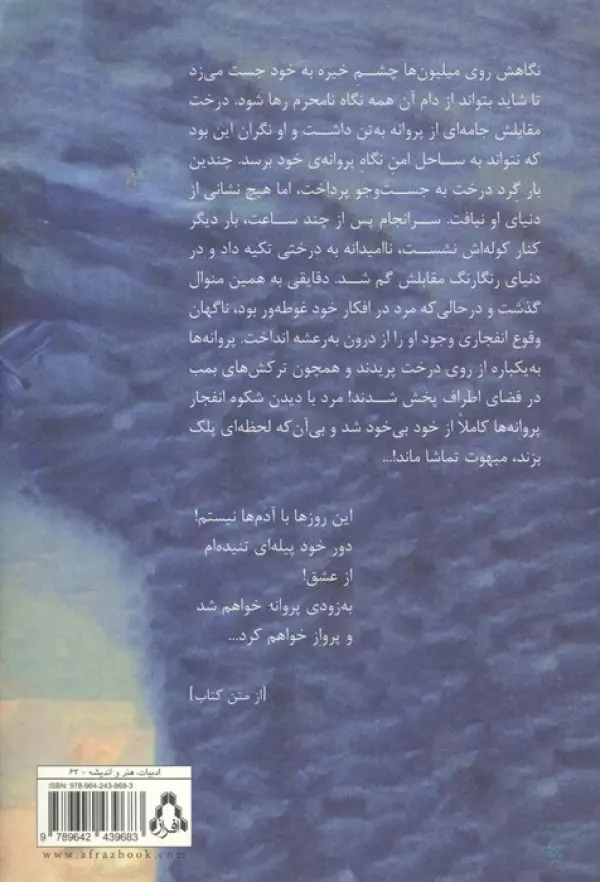 نگاهش روی میلیون‌ها چشم خیره به خود جست می‌زد
تا شاید بتواند از دام آن همه نگاه نامحرم رها شود. درخت
مقابلش جامه‌ای از پروانه به‌تن داشت و او نگران این بود
که نتواند به ساحل امنِ نگاهِ پروانه‌ی خود برسد. چندین
بار گِرد درخت به جست‌وجو پرداخت، اما هیچ نشانی از
دنیای او نیافت. سرانجام پس از چند ساعت، بار دیگر
کنار کوله‌اش نشست، ناامیدانه به درختی تکیه داد و در
دنیای رنگارنگ مقابلش گم شد. دقایقی به همین منوال
گذشت و درحالی‌که مرد در افکار خود غوطه‌ور بود، ناگهان
وقوع انفجاری وجود او را از درون به‌رعشه انداخت. پروانه‌ها
به‌یکباره از روی درخت پریدند و همچون ترکش‌های بمب
در فضای اطراف پخش شدند! مرد با دیدن شکوه انفجار
پروانه‌ها کاملاً از خود بی‌خود شد و بی‌آن‌که لحظه‌ای پلک
بزند، مبهوت تماشا ماند!...
این روزها با آدم‌ها نیستم!
دور خود پیله‌ای تنیده‌ام
از عشق!
به‌زودی پروانه خواهم شد
و پرواز خواهم کرد...
[از متن کتاب]
ادبیات، هنر و اندیشه - ۶۳
ISBN: 978-964-243-968-3
افراز
9 789642 439683
www.afrazbook.com